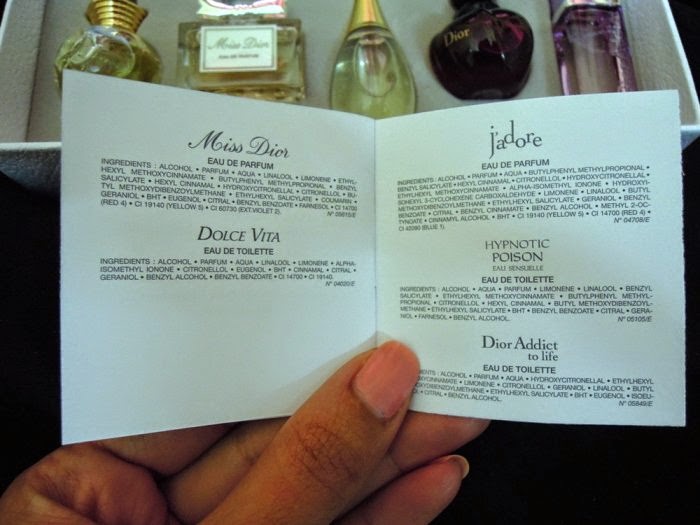 Miss Dior
EAU DE PARFUM
Dior
Miss Dior
EAU DE PARFUM
INGREDIENTS : ALCOHOL • PARFUM • AQUA • LINALOOL • LIMONENE • ETHYL-
HEXYL METHOXYCINNAMATE • BUTYLPHENYL METHYLPROPIONAL • BENZYL
SALICYLATE • HEXYL CINNAMAL • HYDROXYCITRONELLAL • CITRONELLOL • BU-
TYL METHOXYDIBENZOYLMETHANE • ETHYLHEXYL SALICYLATE • COUMARIN •
GERANIOL • BHT • EUGENOL • CITRAL • BENZYL BENZOATE • FARNESOL • CI 14700
(RED 4) • CI 19140 (YELLOW 5) • CI 60730 (EXT.VIOLET 2).
N° 05615/E
DOLCE VITA
EAU DE TOILETTE
INGREDIENTS : ALCOHOL • PARFUM • AQUA • LINALOOL • LIMONENE • ALPHA-
ISOMETHYL IONONE • CITRONELLOL • EUGENOL • BHT • CINNAMAL • CITRAL •
GERANIOL • BENZYL ALCOHOL • BENZYL BENZOATE • CI 14700 • CI 19140.
N° 04020/E
j'adore
EAU DE PARFUM
INGREDIENTS : ALCOHOL • PARFUM • AQUA • BUTYLPHENYL METHYLPROPIONAL •
BENZYL SALICYLATE • HEXYL CINNAMAL • CITRONELLOL • HYDROXYCITRONELLAL •
ETHYLHEXYL METHOXYCINNAMATE • ALPHA-ISOMETHYL IONONE • HYDROXYI-
SOHEXYL 3-CYCLOHEXENE CARBOXALDEHYDE • LIMONENE • LINALOOL • BUTYL
METHOXYDIBENZOYLMETHANE • ETHYLHEXYL SALICYLATE • GERANIOL • BENZYL
BENZOATE • CITRAL • BENZYL CINNAMATE • BENZYL ALCOHOL • METHYL 2-OC-
TYNOATE • CINNAMYL ALCOHOL • BHT • CI 19140 (YELLOW 5) • CI 14700 (RED 4) •
CI 42090 (BLUE 1).
N° 04708/E
HYPNOTIC
POISON
EAU SENSUELLE
EAU DE TOILETTE
INGREDIENTS : ALCOHOL • AQUA • PARFUM • LIMONENE • LINALOOL • BENZYL
SALICYLATE • ETHYLHEXYL METHOXYCINNAMATE • BUTYLPHENYL METHYL-
PROPIONAL • CITRONELLOL • HEXYL CINNAMAL • BUTYL METHOXYDIBENZOYL-
METHANE • ETHYLHEXYL SALICYLATE • BHT • BENZYL BENZOATE • CITRAL • GERA-
NIOL • FARNESOL • BENZYL ALCOHOL.
N° 05105/E
Dior Addict
to life
EAU DE TOILETTE
ALCOHOL • PARFUM • AQUA • HYDROXYCITRONELLAL • ETHYLHEXYL
LIMONENE • CITRONELLOL • GERANIOL • LINALOOL • BUTYL
METHOXYDIBENZOYLMETHANE • ETHYLHEXYL SALICYLATE • BHT • EUGENOL • ISOEU-
• CITRAL • BENZYL ALCOHOL.
N° 05849/E